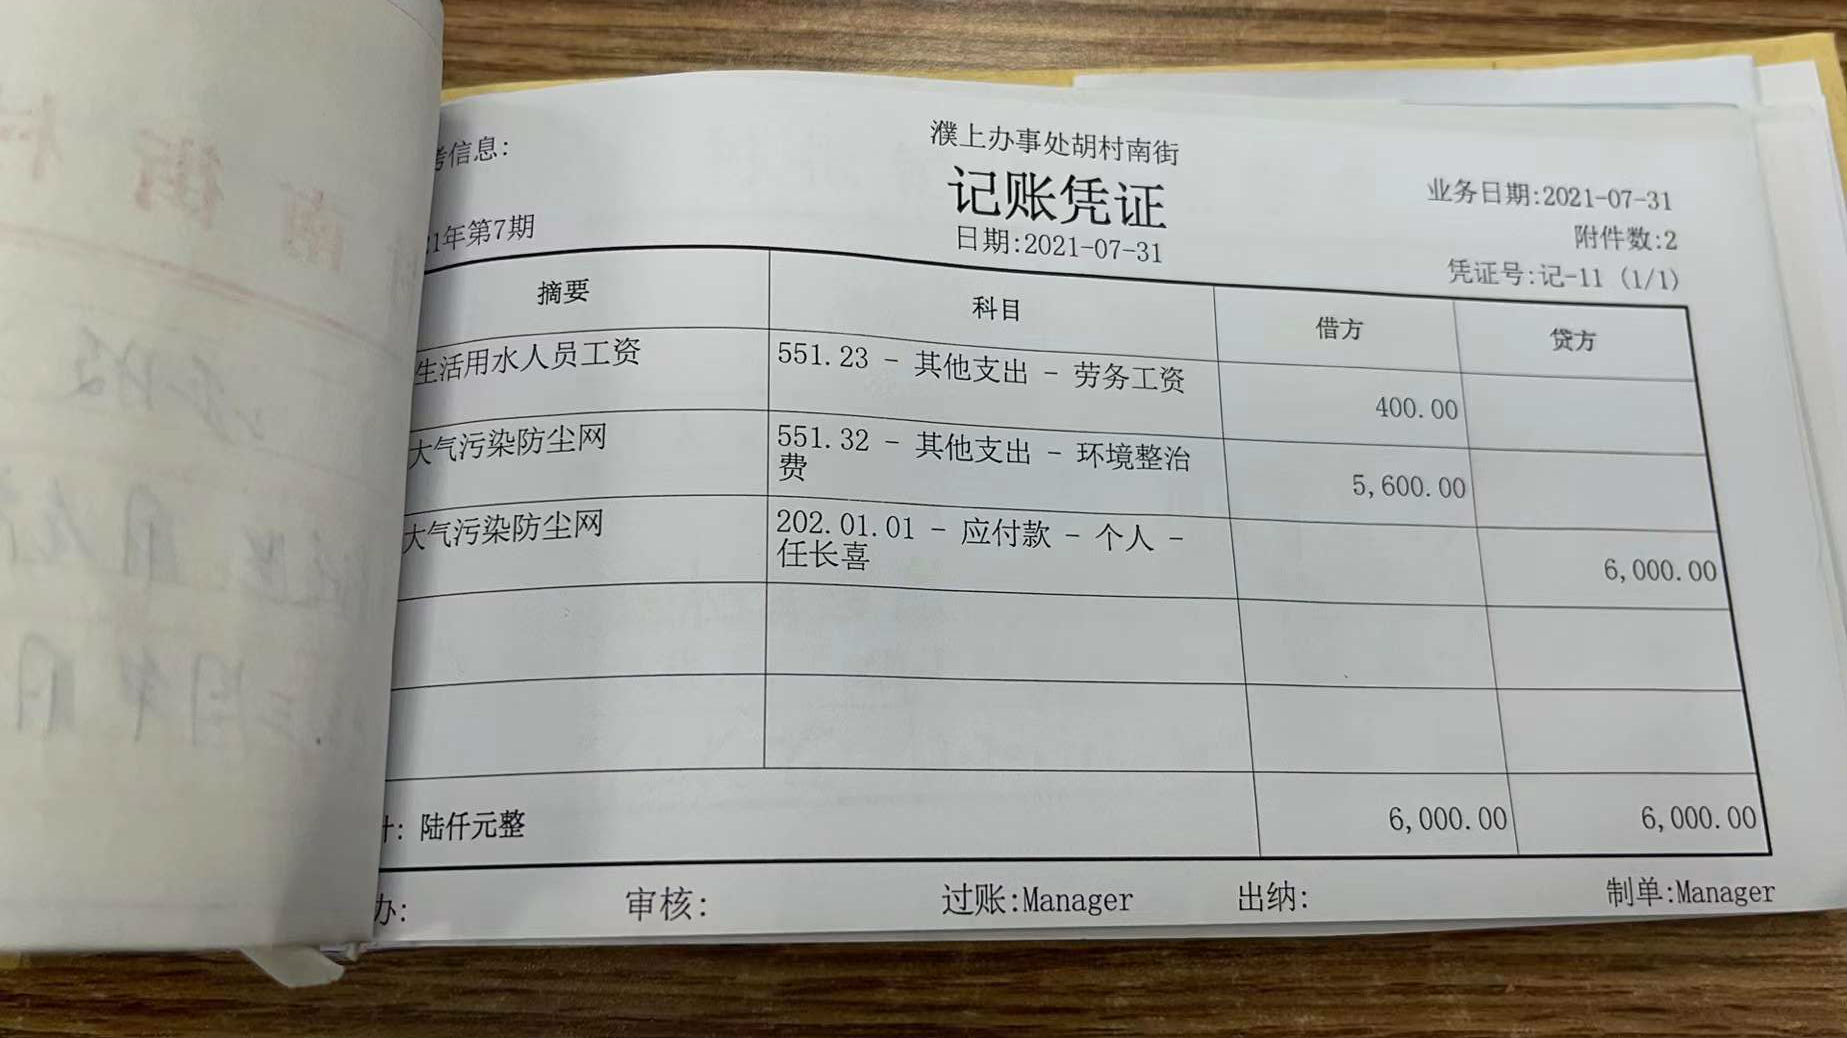 濮上办事处胡村南街
考信息:
记账凭证
业务日期:2021-07-31
21年第7期
日期:2021-07-31
附件数:2
凭证号:记-11 (1/1)
摘要 科目 借方 贷方
生活用水人员工资 551.23 - 其他支出 - 劳务工资 400.00
大气污染防尘网 551.32 - 其他支出 - 环境整治
费 5,600.00
大气污染防尘网 202.01.01 - 应付款 - 个人 -
任长喜 6,000.00
计: 陆仟元整 6,000.00 6,000.00
办: 审核: 过账:Manager 出纳: 制单:Manager